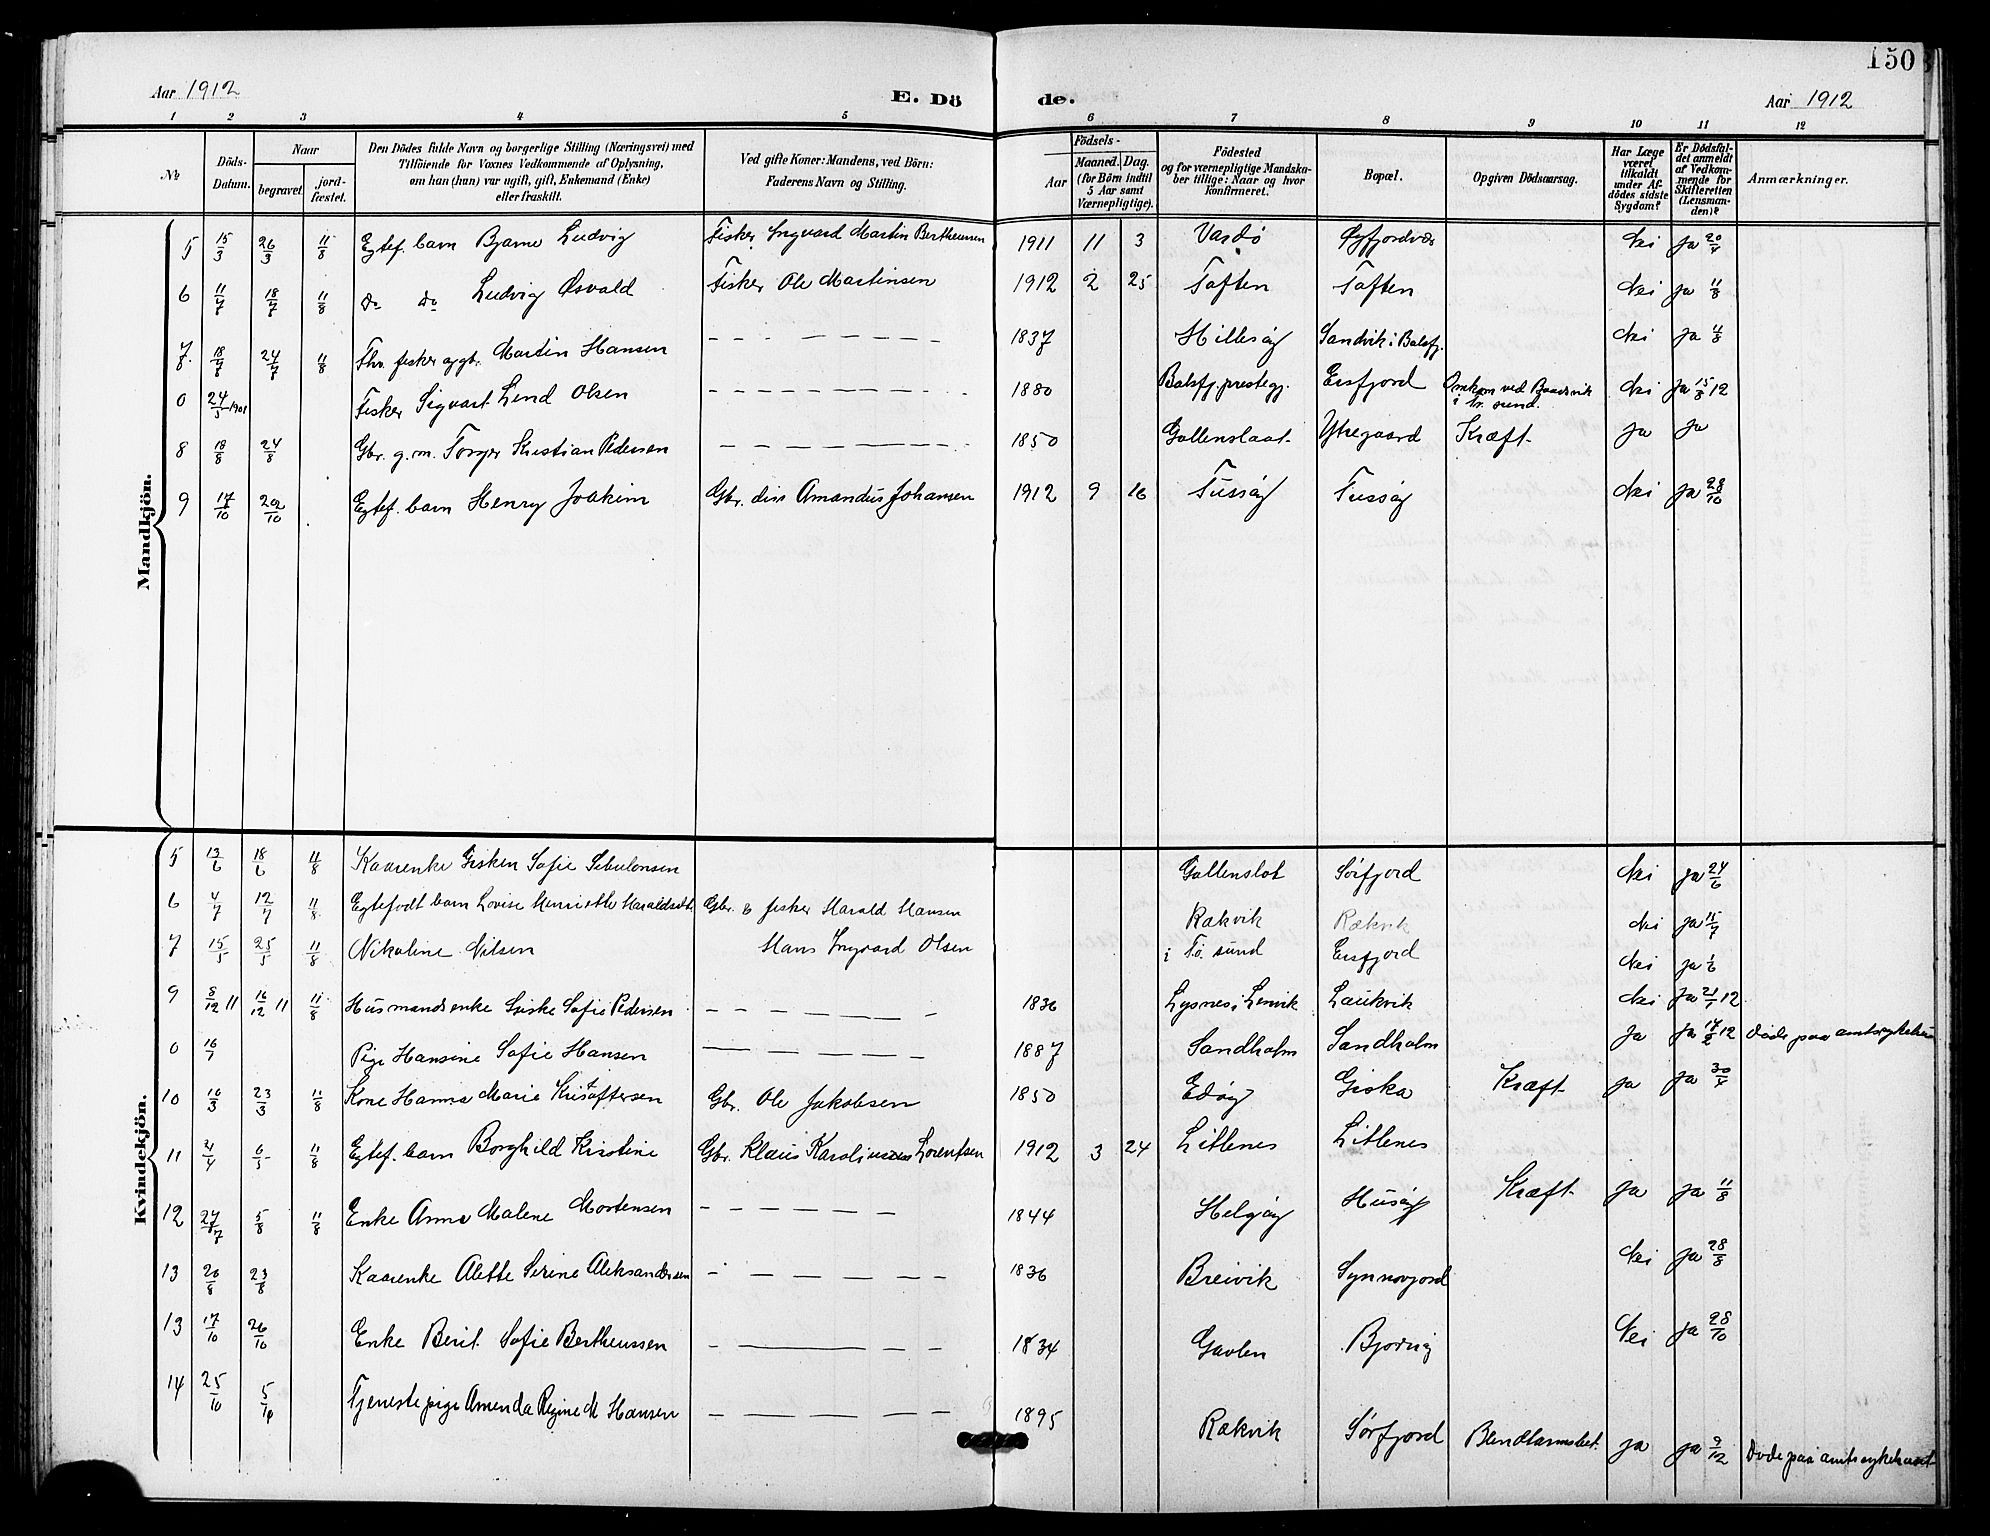 150
Aar 1912
E. Dö
de.
Aar 1912
1 2 3 4 5 6 7 8 9 10 11 12
№
Döds-
Datum.
Naar
begravet
jord-
fæstet.
Den Dödes fulde Navn og borgerlige Stilling (Næringsvei) med
Tilföiende for Voxnes Vedkommende af Oplysning,
om han (hun) var ugift, gift, Enkemand (Enke)
eller fraskilt.
Ved gifte Koner: Mandens, ved Börn:
Faderens Navn og Stilling.
Födsels-
Aar
Maaned. Dag.
(for Börn indtil
5 Aar samt
Værnepligtige).
Födested
og for værnepligtige Mandska-
ber tillige: Naar og hvor
konfirmeret.
Bopæl.
Opgiven Dödsaarsag.
Har Læge
været
tilkaldt
under Af-
dödes sidste
Sygdom?
Er Dödsfal-
det anmeldt
af Vedkom-
mende for
Skifteretten
(Lensman-
den)?
Anmærkninger.
Mandkjön.
5 15/3 26/3 11/8 Egtef. barn Bjarne Ludvig Fisker Ingvard Martin Bertheussen 1911 11 3 Vardö Øyfjordvær Nei ja 20/4
6 11/7 18/7 11/8 do do Ludvig Osvald Fisker Ole Martinsen 1912 2 25 Toften Toften Nei ja 11/8
7. 18/7 24/7 11/8 Fhv. fisker og gbr. Martin Hansen — — — 1837 Hillesøy Sandvik i Balsfj. Nei ja 4/8
0 24/5 1901 Fisker Sigvart Lind Olsen — — — 1880 Balsfj. prestegj. Ersfjord Omkom ved Baadsvik Nei ja 15/8 12
i Tr. sund.
8 18/8 24/8 Gbr. g. m. Torger Kristian Pedersen — — — 1850 Gollenslaat Ytregaard Kræft ja ja
9 17/10 20/10 Egtef. barn Henry Joakim Gbr. diss Amandus Johansen 1912 9 16 Tussøy Tussøy Nei ja 28/10
Kvindekjön.
5 13/6 18/6 11/8 Kaarenke Gisken Sofie Sebulonsen Gollenslot Sørfjord Nei ja 24/6
6 4/7 12/7 11/8 Egtefødt barn Lovise Henriette Haraldsdtr Gbr. & fisker Harald Hansen Rakvik Rækvik Nei ja 15/7
7 15/5 25/5 11/8 Nikoline Nilsen Hans Ingvard Olsen i Tr. sund Ersfjord Nei ja 1/6
9 8/12 11 16/12 11 11/8 Husmandsenke Giske Sofie Pedersen — — — 1836 Lysnes i Lenvik Laukvik Nei ja 21/1 12
0 16/1 Pige Hansine Sofie Hansen — — — 1887 Sandholm Sandholm Ja ja 17/2 12 Døde paa amtsykehu
10 16/3 23/3 11/8 Kone Hanna Marie Kristoffersen Gbr. Ole Jakobsen 1850 Edøy Giska Kræft ja ja 30/4
11 21/4 6/5 11/8 Egtef. barn Borghild Kristine Gbr. Klaus Karolinus Lorentsen 1912 3 24 Litlenes Litlenes
12 27/7 5/8 11/8 Enke Anna Malene Mortensen — — — 1844 Helgøy Husøy Kræft ja ja 11/8
13 20/8 23/8 Kaarenke Alette Serine Aleksandersen — — — 1836 Breivik Synnovjord Nei ja 28/8
13 17/10 26/10 Enke Berit Sofie Bertheussen — — — 1834 Gavlen Bjørnøy Nei ja 28/10
14 25/10 5/10 Tjenestepige Amenda Regine M Hansen — — — 1895 Rakvik Sørfjord Blindtarmsbet. ja ja 9/12 Døde paa amtsykehuset